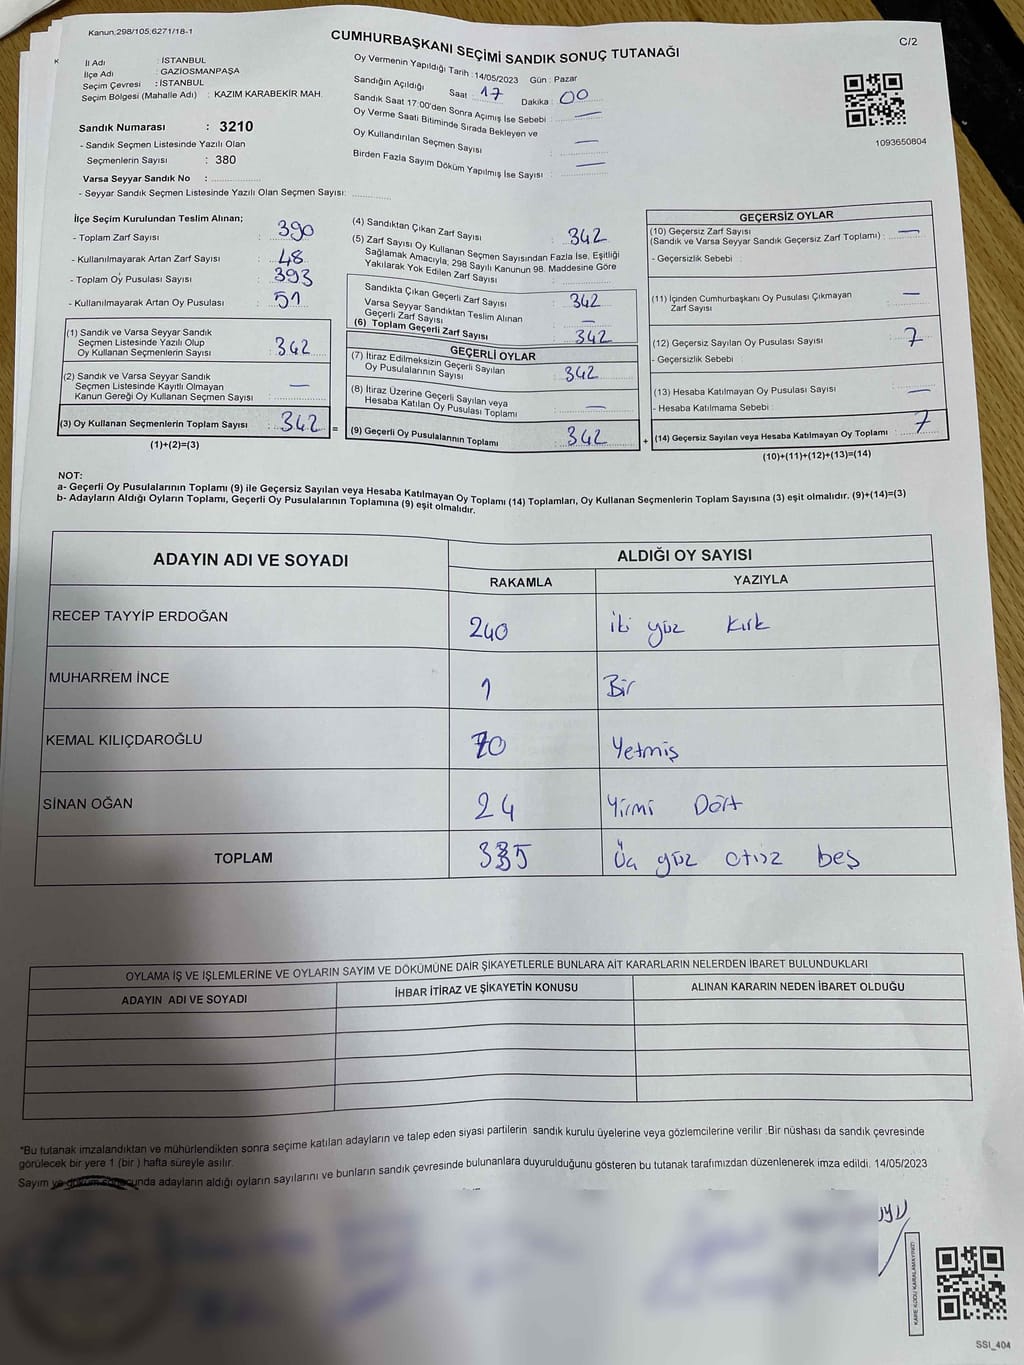 Kanun,298/105,6271/18-1
CUMHURBAŞKANI SEÇİMİ SANDIK SONUÇ TUTANAĞI
C/2
İl Adı : İSTANBUL
İlçe Adı : GAZİOSMANPAŞA
Seçim Çevresi : İSTANBUL
Seçim Bölgesi (Mahalle Adı) : KAZIM KARABEKİR MAH.
Sandık Numarası : 3210
- Sandık Seçmen Listesinde Yazılı Olan
Seçmenlerin Sayısı : 380
Varsa Seyyar Sandık No :
- Seyyar Sandık Seçmen Listesinde Yazılı Olan Seçmen Sayısı:
Oy Vermenin Yapıldığı Tarih : 14/05/2023 Gün : Pazar
Sandığın Açıldığı Saat : 17 Dakika : 00
Sandık Saat 17:00'den Sonra Açımış İse Sebebi : —
Oy Verme Saati Bitiminde Sırada Bekleyen ve
Oy Kullandırılan Seçmen Sayısı : —
Birden Fazla Sayım Döküm Yapılmış İse Sayısı : —
1093650804
İlçe Seçim Kurulundan Teslim Alınan;
- Toplam Zarf Sayısı : 390
- Kullanılmayarak Artan Zarf Sayısı : 48
- Toplam Oy Pusulası Sayısı : 393
- Kullanılmayarak Artan Oy Pusulası : 51
(1) Sandık ve Varsa Seyyar Sandık
Seçmen Listesinde Yazılı Olup
Oy Kullanan Seçmenlerin Sayısı : 342
(2) Sandık ve Varsa Seyyar Sandık
Seçmen Listesinde Kayıtlı Olmayan
Kanun Gereği Oy Kullanan Seçmen Sayısı : —
(3) Oy Kullanan Seçmenlerin Toplam Sayısı : 342 =
(1)+(2)=(3)
(4) Sandıktan Çıkan Zarf Sayısı : 342
(5) Zarf Sayısı Oy Kullanan Seçmen Sayısından Fazla İse, Eşitliği
Sağlamak Amacıyla; 298 Sayılı Kanunun 98. Maddesine Göre
Yakılarak Yok Edilen Zarf Sayısı :
Sandıkta Çıkan Geçerli Zarf Sayısı : 342
Varsa Seyyar Sandıktan Teslim Alınan
Geçerli Zarf Sayısı : —
(6) Toplam Geçerli Zarf Sayısı : 342
GEÇERLİ OYLAR
(7) İtiraz Edilmeksizin Geçerli Sayılan
Oy Pusulalarının Sayısı : 342
(8) İtiraz Üzerine Geçerli Sayılan veya
Hesaba Katılan Oy Pusulası Toplamı : —
(9) Geçerli Oy Pusulalarının Toplamı : 342 +
GEÇERSİZ OYLAR
(10) Geçersiz Zarf Sayısı
(Sandık ve Varsa Seyyar Sandık Geçersiz Zarf Toplamı) : —
- Geçersizlik Sebebi :
(11) İçinden Cumhurbaşkanı Oy Pusulası Çıkmayan
Zarf Sayısı : —
(12) Geçersiz Sayılan Oy Pusulası Sayısı : 7
- Geçersizlik Sebebi
(13) Hesaba Katılmayan Oy Pusulası Sayısı : —
- Hesaba Katılmama Sebebi :
(14) Geçersiz Sayılan veya Hesaba Katılmayan Oy Toplamı : 7
(10)+(11)+(12)+(13)=(14)
NOT:
a- Geçerli Oy Pusulalarının Toplamı (9) ile Geçersiz Sayılan veya Hesaba Katılmayan Oy Toplamı (14) Toplamları, Oy Kullanan Seçmenlerin Toplam Sayısına (3) eşit olmalıdır. (9)+(14)=(3)
b- Adayların Aldığı Oyların Toplamı, Geçerli Oy Pusulalarının Toplamına (9) eşit olmalıdır.
ADAYIN ADI VE SOYADI
ALDIĞI OY SAYISI
RAKAMLA YAZIYLA
RECEP TAYYİP ERDOĞAN 240 iki yüz kırk
MUHARREM İNCE 1 Bir
KEMAL KILIÇDAROĞLU 70 Yetmiş
SİNAN OĞAN 24 Yirmi Dört
TOPLAM 335 Üç yüz otuz beş
OYLAMA İŞ VE İŞLEMLERİNE VE OYLARIN SAYIM VE DÖKÜMÜNE DAİR ŞİKAYETLERLE BUNLARA AİT KARARLARIN NELERDEN İBARET BULUNDUKLARI
ADAYIN ADI VE SOYADI İHBAR İTİRAZ VE ŞİKAYETİN KONUSU ALINAN KARARIN NEDEN İBARET OLDUĞU
*Bu tutanak imzalandıktan ve mühürlendikten sonra seçime katılan adayların ve talep eden siyasi partilerin sandık kurulu üyelerine veya gözlemcilerine verilir .Bir nüshası da sandık çevresinde
görülecek bir yere 1 (bir ) hafta süreyle asılır.
Sayım ve döküm sonucunda adayların aldığı oyların sayılarını ve bunların sandık çevresinde bulunanlara duyurulduğunu gösteren bu tutanak tarafımızdan düzenlenerek imza edildi. 14/05/2023
KARE KODU KARALAMAYINIZ!
SSI_404